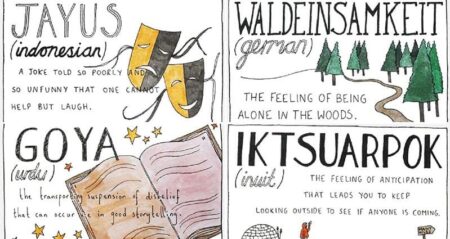 JAYUS
(indonesian)
A JOKE TOLD SO POORLY AND
SO UNFUNNY THAT ONE CANNOT
HELP BUT LAUGH.
WALDEINSAMKEIT
(german)
THE FEELING OF BEING
ALONE IN THE WOODS.
GOYA
(urdu)
the transporting suspension of disbelief
that can occur in good storytelling.
IKTSUARPOK
(inuit)
THE FEELING OF ANTICIPATION
THAT LEADS YOU TO KEEP
LOOKING OUTSIDE TO SEE IF ANYONE IS COMING.